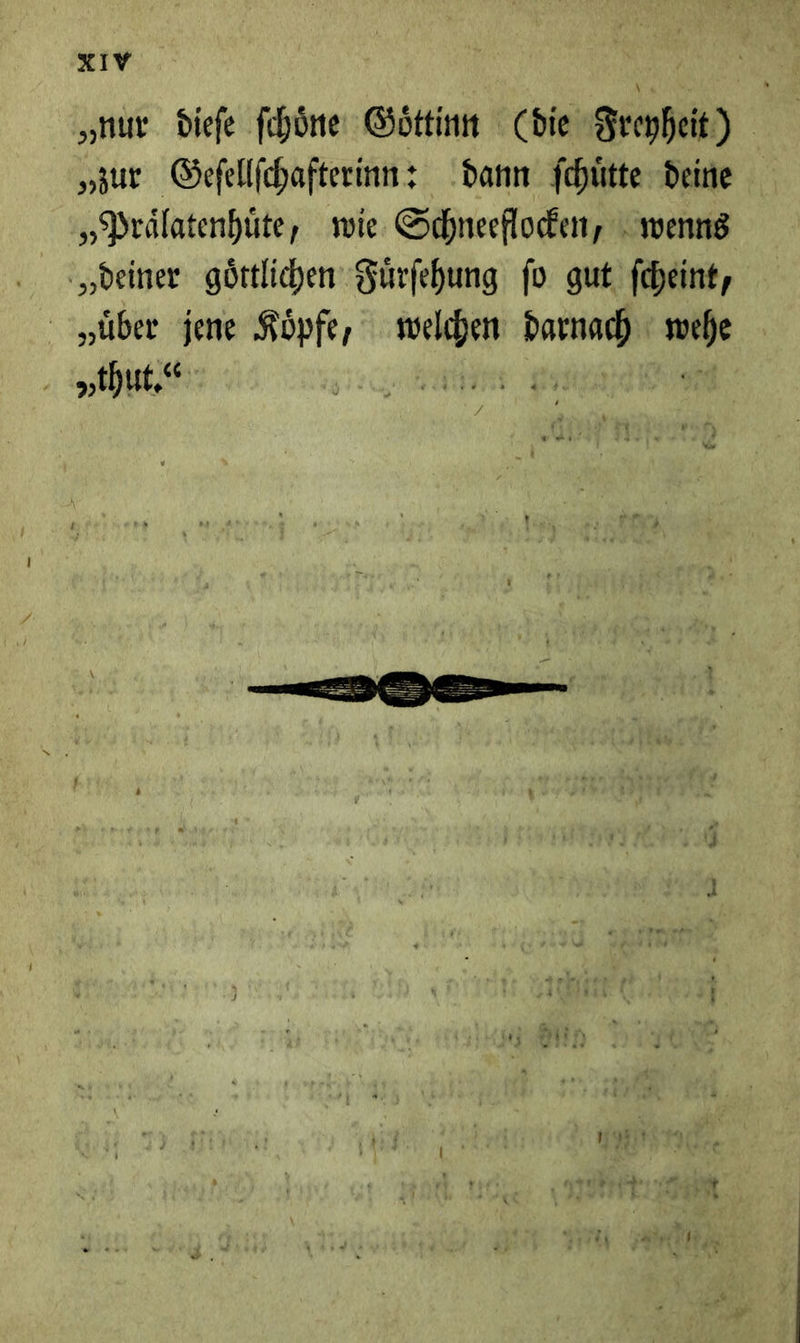 XIV
„nur diese schöne Göttinn (die Freyheit)
„zur Gesellschafterinn: dann schütte deine
„Prälatenhüte, wie Schneeflocken, wenns
„deiner göttlichen Fürsehung so gut scheint,
„über jene Köpfe, welchen darnach wehe
„thut.“